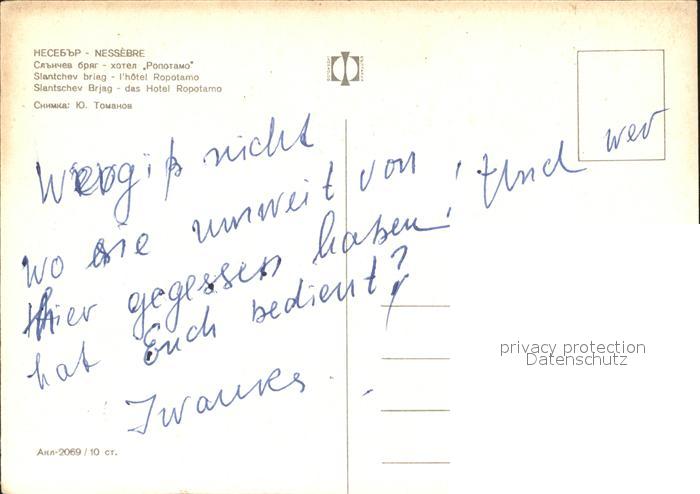 НЕСЕБЪР - NESSÈBRE
Слънчев бряг - хотел „Ропотамо"
Slantchev briag - l'hôtel Ropotamo
Slantschev Brjag - das Hotel Ropotamo
Снимка: Ю. Томанов
Wergiß nicht
wo sie unweit von
hier gegessen haben! Und wer
hat Euch bedient?
Iwanka
privacy protection
Datenschutz
Акл-2069 / 10 ст.